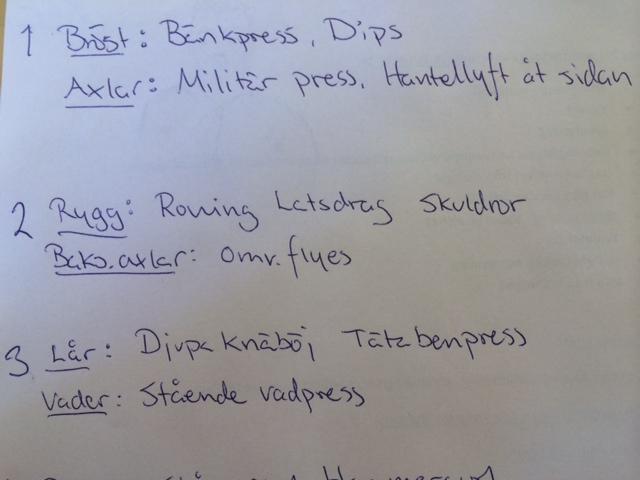 1 Bröst: Bänkpress, Dips
Axlar: Militär press, Hantellyft åt sidan
2 Rygg: Rowing Latsdrag Skuldror
Baks.axlar: omv.flyes
3 Lår: Djupa knäböj Täta benpress
Vader: Stående vadpress